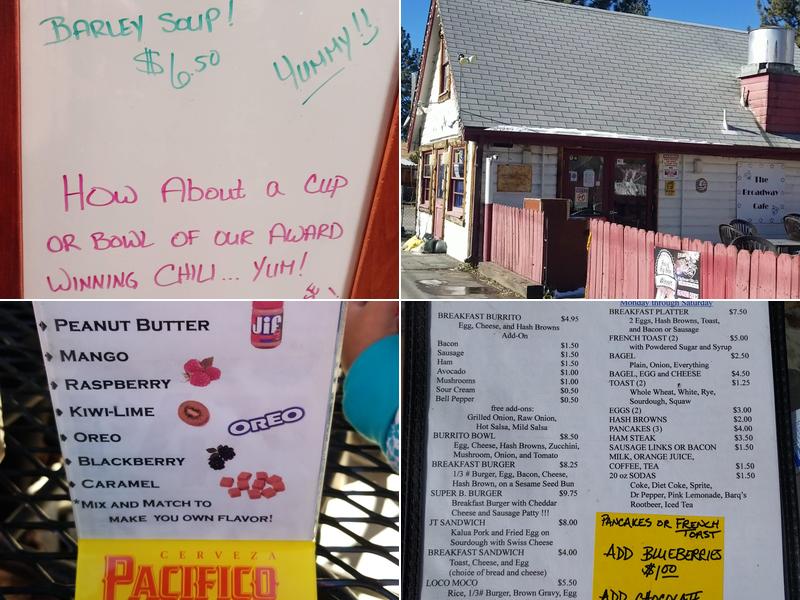 BARLEY SOUP!
$6.50
YUMMY!!
HOW ABOUT A CUP
OR BOWL OF OUR AWARD
WINNING CHILI... YUM!
The
Broadway
Cafe
PEANUT BUTTER
Jif
MANGO
RASPBERRY
KIWI-LIME
OREO
OREO
BLACKBERRY
CARAMEL
*MIX AND MATCH TO
MAKE YOU OWN FLAVOR!
CERVEZA
PACIFICO
BREAKFAST BURRITO $4.95
Egg, Cheese, and Hash Browns
Add-On
Bacon $1.50
Sausage $1.50
Ham $1.50
Avocado $1.00
Mushrooms $1.00
Sour Cream $0.50
Bell Pepper $0.50
free add-ons:
Grilled Onion, Raw Onion,
Hot Salsa, Mild Salsa
BURRITO BOWL $8.50
Egg, Cheese, Hash Browns, Zucchini,
Mushroom, Onion, and Tomato
BREAKFAST BURGER $8.25
1/3 # Burger, Egg, Bacon, Cheese,
Hash Brown, on a Sesame Seed Bun
SUPER B. BURGER $9.75
Breakfast Burger with Cheddar
Cheese and Sausage Patty !!!
JT SANDWICH $8.00
Kalua Pork and Fried Egg on
Sourdough with Swiss Cheese
BREAKFAST SANDWICH $4.00
Toast, Cheese, and Egg
(choice of bread and cheese)
LOCO MOCO $5.50
Rice, 1/3# Burger, Brown Gravy, Egg
Monday through Saturday
BREAKFAST PLATTER $7.50
2 Eggs, Hash Browns, Toast,
and Bacon or Sausage
FRENCH TOAST (2) $5.00
with Powdered Sugar and Syrup
BAGEL $2.50
Plain, Onion, Everything
BAGEL, EGG and CHEESE $4.50
TOAST (2) $1.25
Whole Wheat, White, Rye,
Sourdough, Squaw
EGGS (2) $3.00
HASH BROWNS $2.00
PANCAKES (3) $4.00
HAM STEAK $3.50
SAUSAGE LINKS OR BACON $1.50
MILK, ORANGE JUICE,
COFFEE, TEA $1.50
20 oz SODAS $1.50
Coke, Diet Coke, Sprite,
Dr Pepper, Pink Lemonade, Barq's
Rootbeer, Iced Tea
PANCAKES OR FRENCH
TOAST
ADD BLUEBERRIES
$1.00
ADD CHOCOLATE